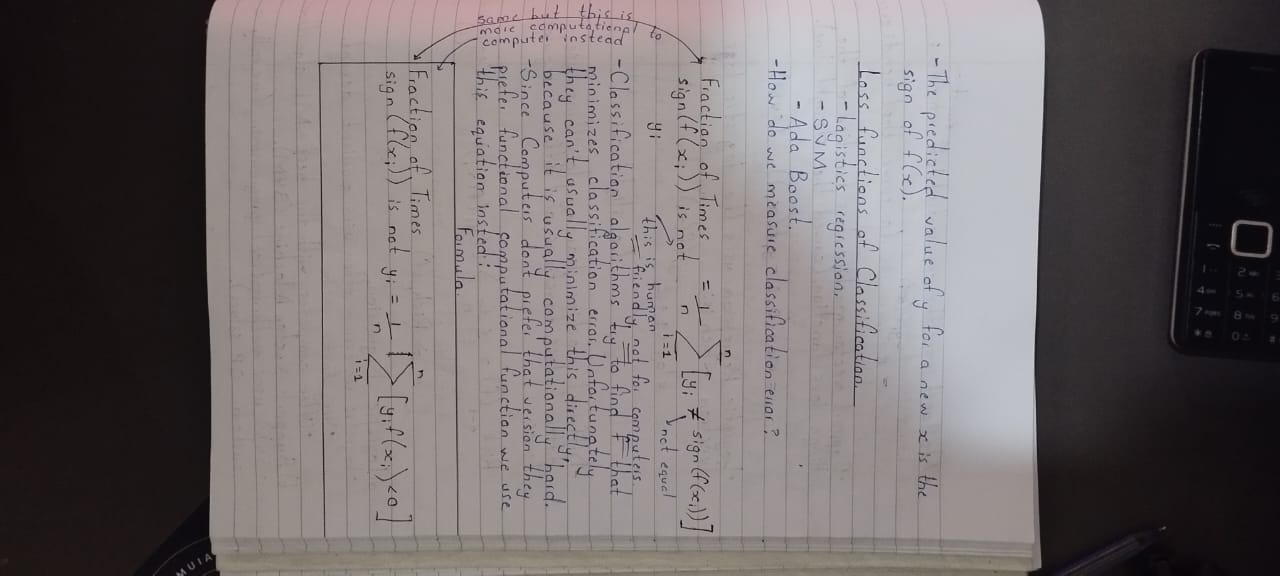 - The predicted value of y for a new x is the
sign of f(x).
Loss functions of Classification.
- Logistics regression.
- SVM.
- Ada Boost.
- How do we measure classification error?
Fraction of Times = 1/n Σ i=1 n [yi ≠ sign(f(xi))]
sign(f(xi)) is not
yi
not equal
this is human
friendly not for computers
- Classification algorithms try to find f that
minimizes classification error. Unfortunately
they can't usually minimize this directly,
because it is usually computationally hard.
- Since Computers dont prefer that version they
prefer functional computational function we use
this equation insted:
same but this is
more computational to
computer instead
Formula.
Fraction of Times
sign(f(xi)) is not yi = 1/n Σ i=1 n [yi f(xi) < 0]
MUIA